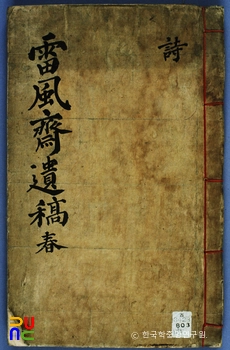 詩
雷風齋遺稿 春
803
ⓒ 한국학중앙연구원